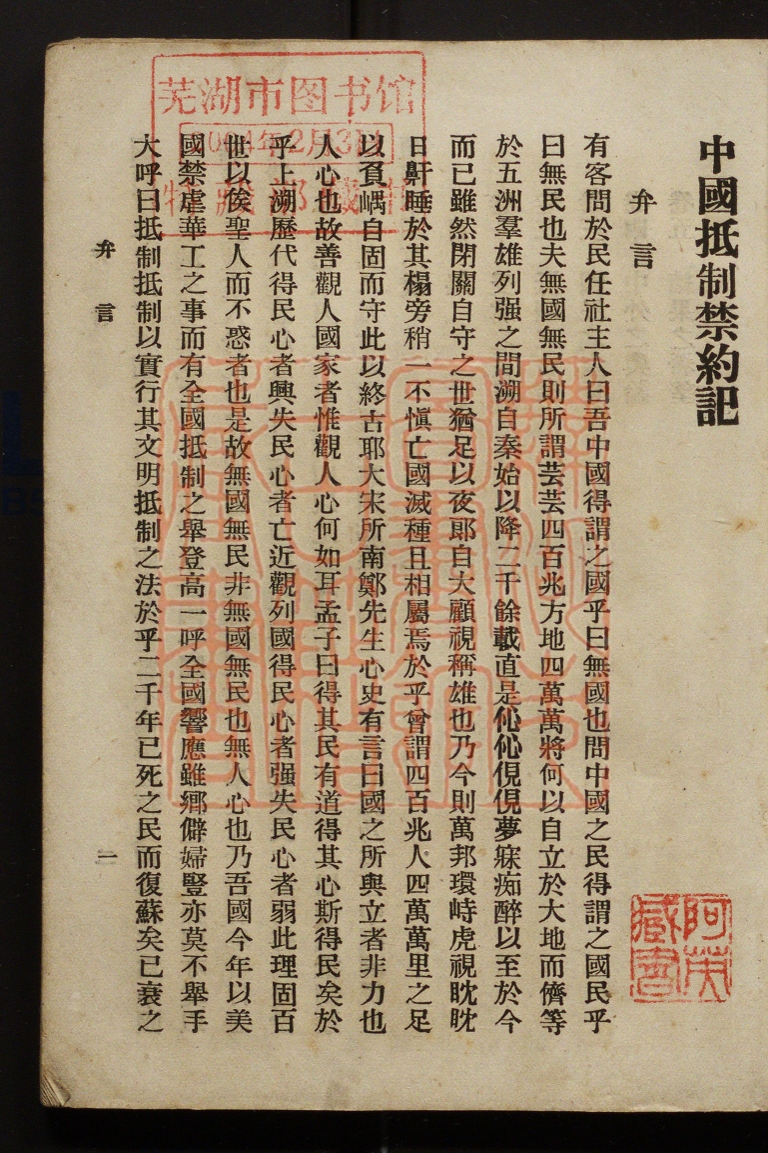 中國抵制禁約記
弁言
有客問於民任社主人曰吾中國得謂之國乎曰無國也問中國之民得謂之國民乎
曰無民也夫無國無民則所謂芸芸四百兆方地四萬萬將何以自立於大地而儕等
於五洲羣雄列强之間溯自秦始以降二千餘載直是伈伈俔俔夢寐痴醉以至於今
而已雖然閉關自守之世猶足以夜郎自大顧視稱雄也乃今則萬邦環峙虎視眈眈
日鼾睡於其榻旁稍一不愼亡國滅種且相屬焉於乎曾謂四百兆人四萬萬里之足
以負嵎自固而守此以終古耶大宋所南鄭先生心史有言曰國之所與立者非力也
人心也故善觀人國家者惟觀人心何如耳孟子曰得其民有道得其心斯得民矣於
乎上溯歷代得民心者興失民心者亡近觀列國得民心者强失民心者弱此理固百
世以俟聖人而不惑者也是故無國無民非無國無民也無人心也乃吾國今年以美
國禁虐華工之事而有全國抵制之舉登高一呼全國響應雖鄉僻婦豎亦莫不舉手
大呼曰抵制抵制以實行其文明抵制之法於乎二千年已死之民而復蘇矣已衰之
弁言
一
芜湖市图书馆
阿英藏書